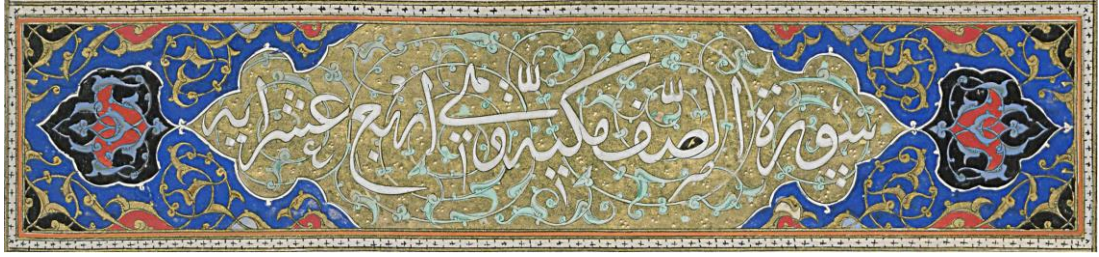 سورة الصّف مكيّة وهي اربع عشر ايه